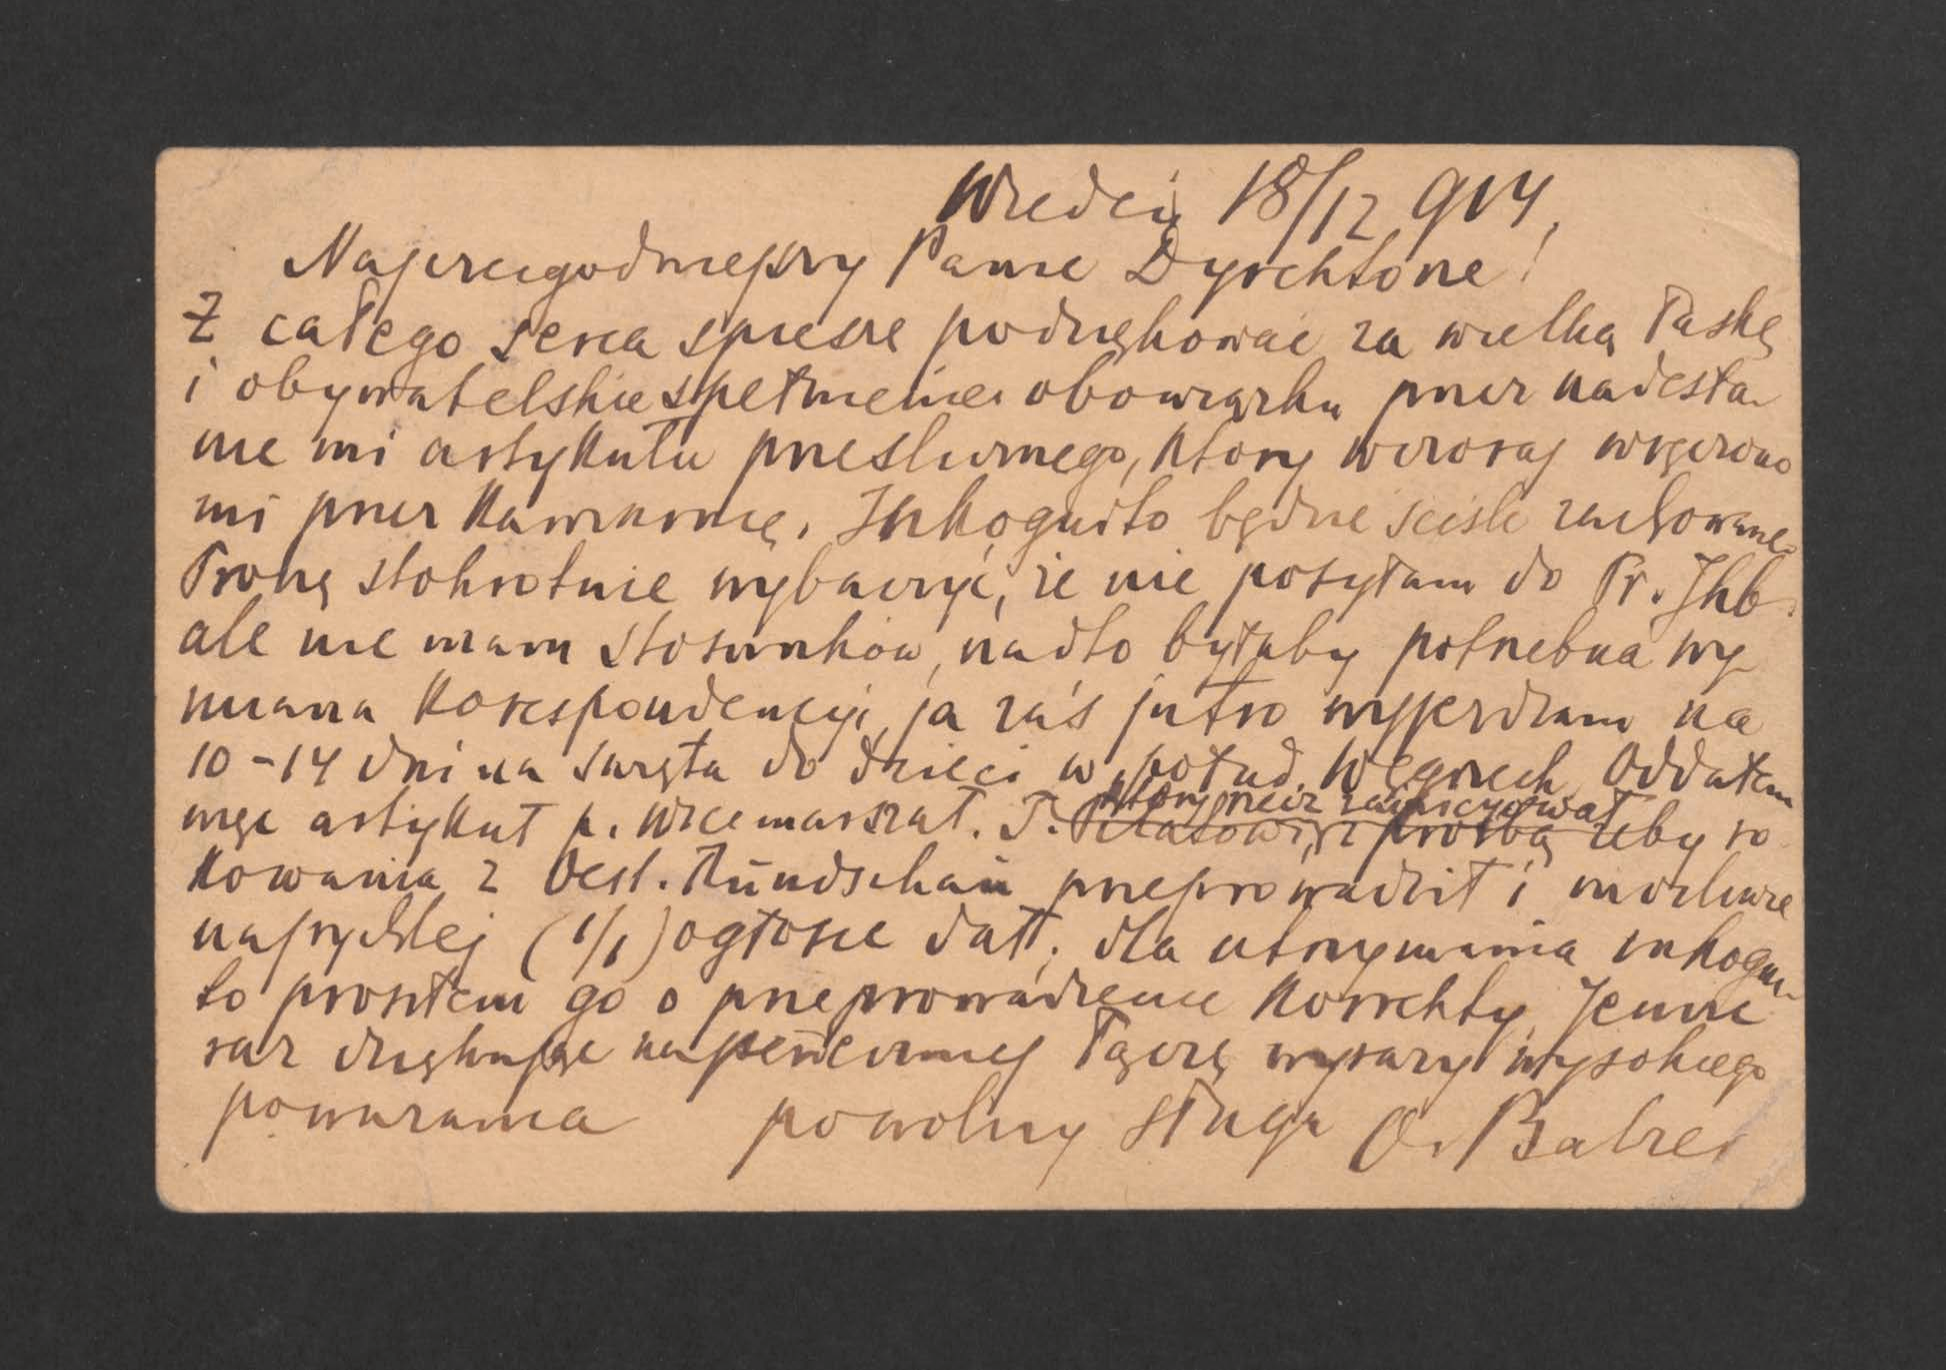 Wiedeń 18/12 914.
Najczcigodniejszy Panie Dyrektorze!
Z całego serca spieszę podziękować za wielką łaskę
i obywatelskie spełnienie obowiązku przez nadesła-
nie mi artykułu prześlicznego, który wczoraj wręczono
mi przez kawiarnię. Inkognito będzie ściśle zachowane.
Proszę stokrotnie wybaczyć, że nie posyłam do Pr. Jhb.
ale nie mam stosunków, nadto byłaby potrzebna wy-
miana korespondencyi, ja zaś jutro wyjeżdżam na
10-14 dni na święta do dzieci w połud. Węgrzech. Oddałem
więc artykuł p. wicemarszał. T. Pilatowi, z prośbą żeby ro-
który rzecz zainicyował
kowania z Oest. Rundschau przeprowadził i możliwie
najrychlej (1/1) ogłosić dał; dla utrzymania inkogni-
to prosiłem go o przeprowadzenie korrekty. Jeszcze
raz dziękując najserdeczniej łączę wyrazy wysokiego
poważania powolny sługa O. Balzer